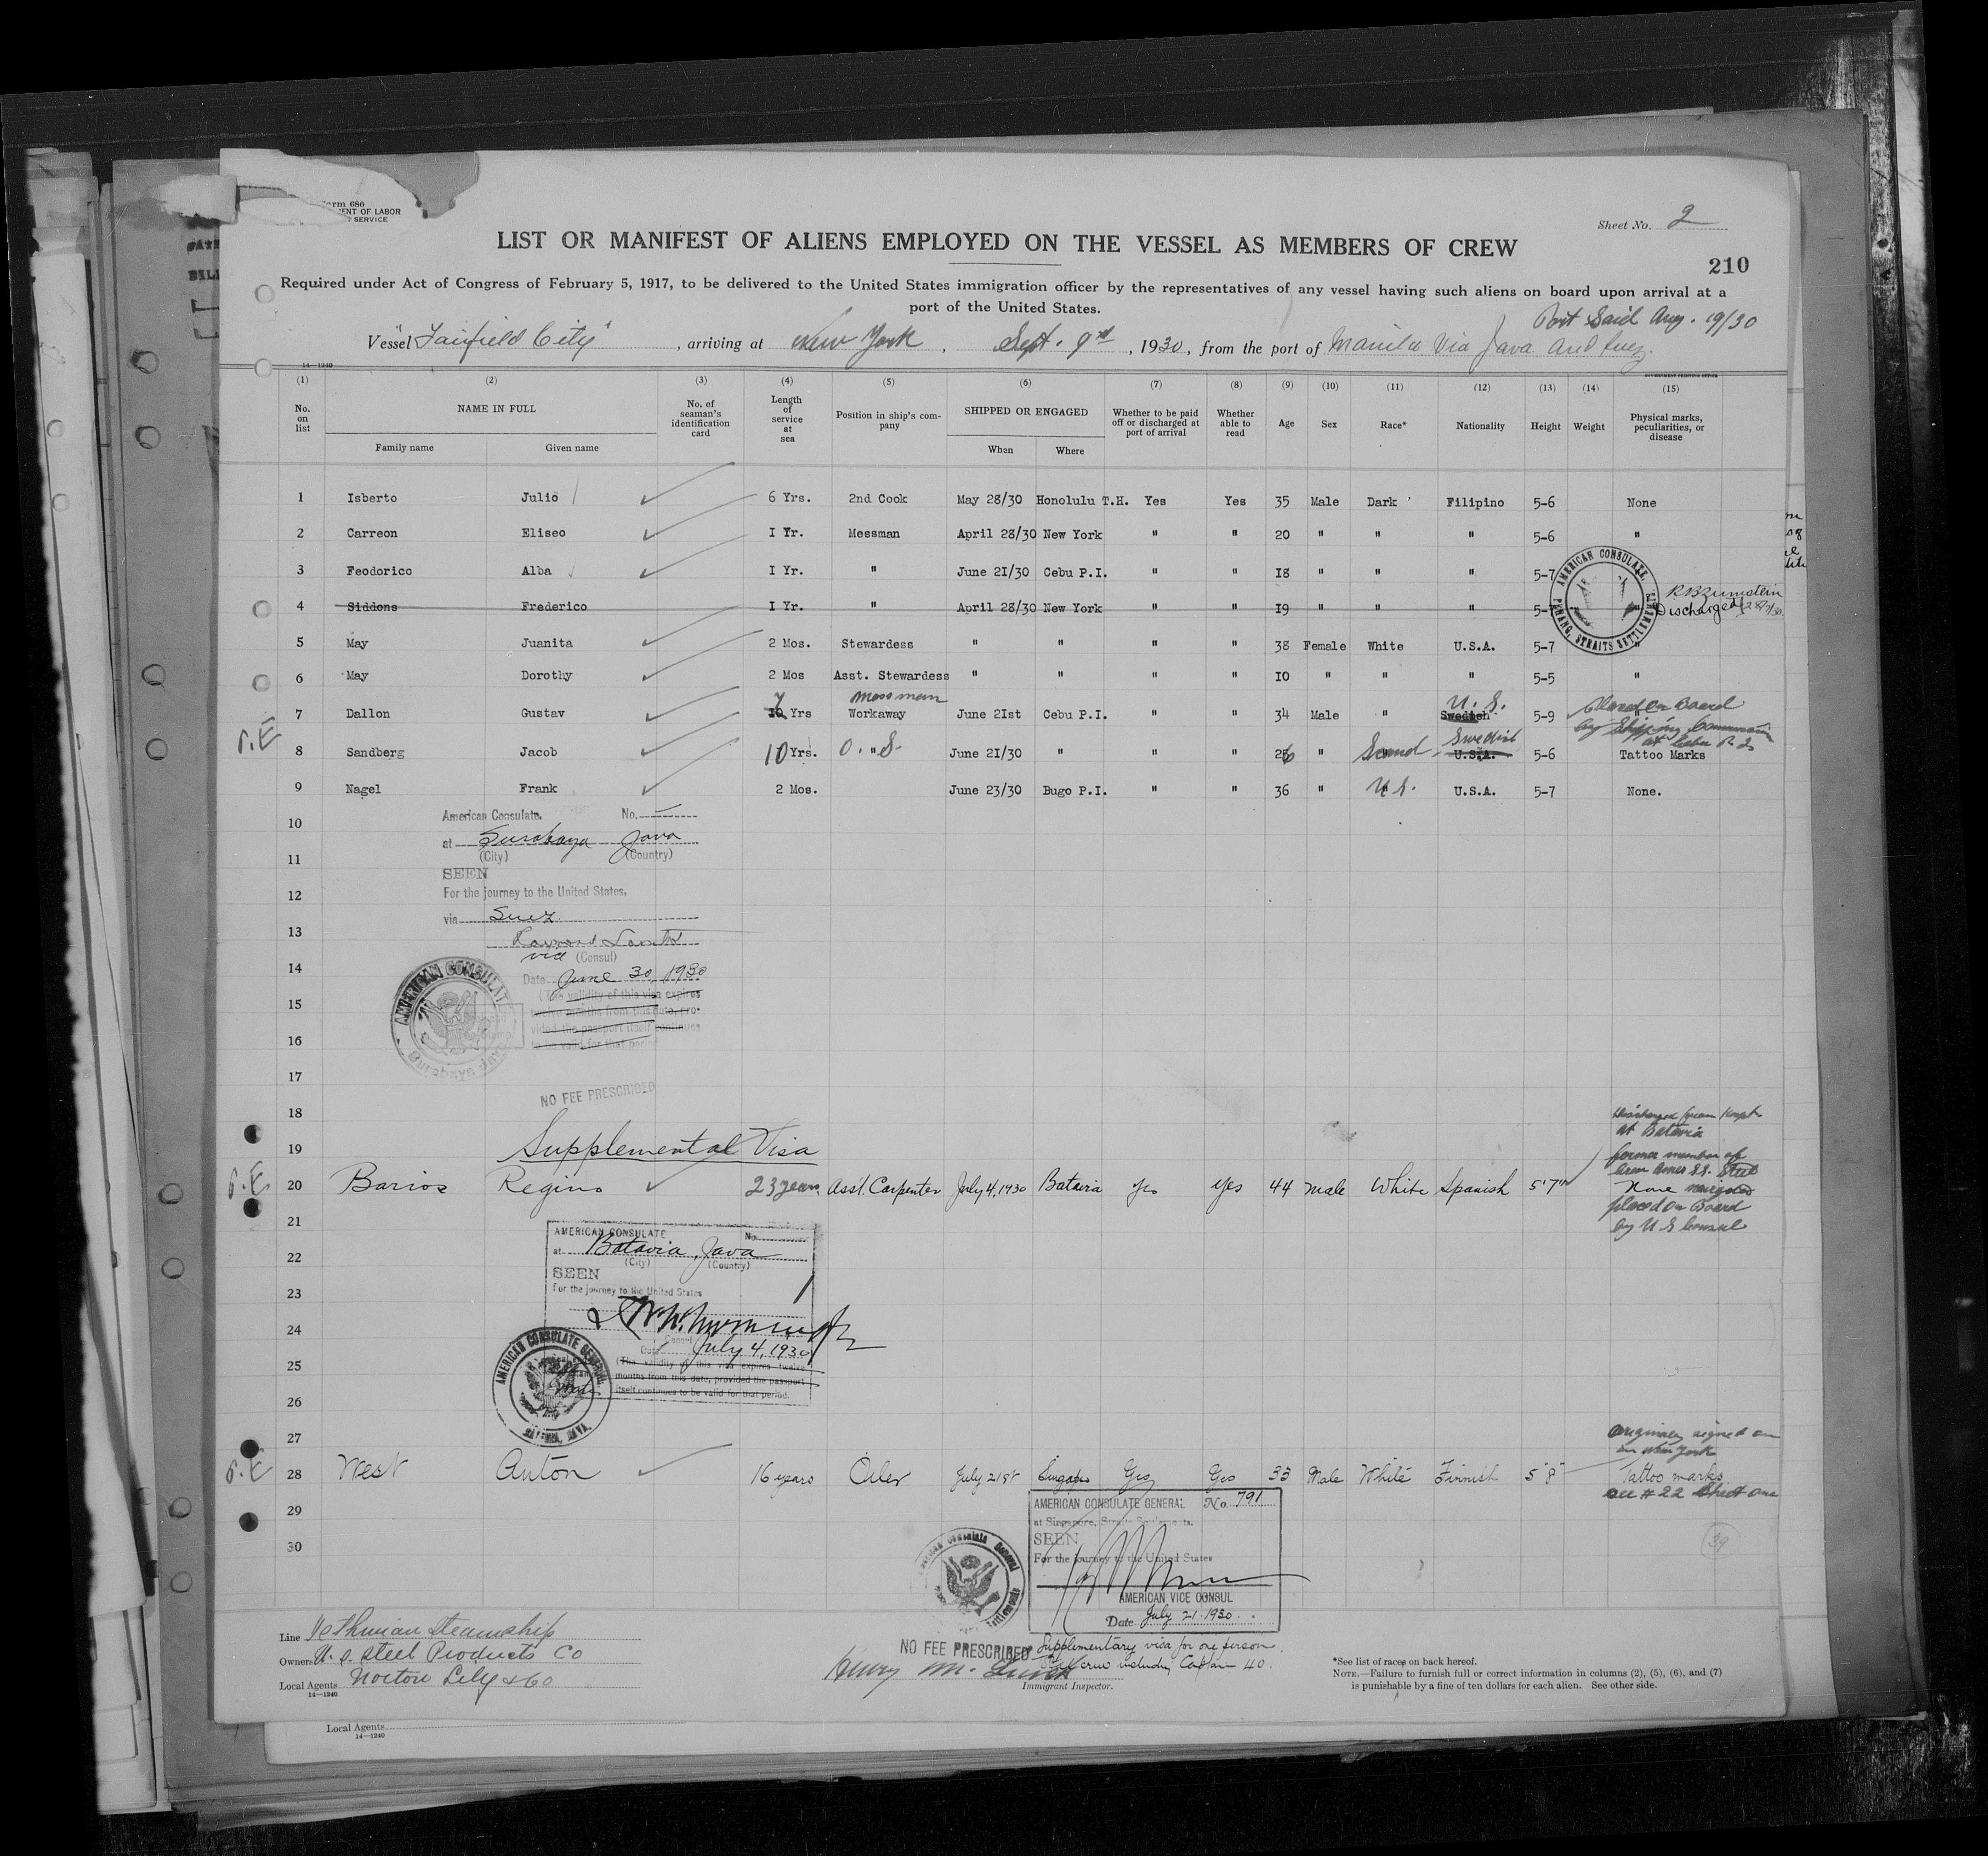 Form 680
MENT OF LABOR
SERVICE
Sheet No. 2
LIST OR MANIFEST OF ALIENS EMPLOYED ON THE VESSEL AS MEMBERS OF CREW
210
Required under Act of Congress of February 5, 1917, to be delivered to the United States immigration officer by the representatives of any vessel having such aliens on board upon arrival at a
port of the United States.
Port Said Aug. 19/30
Vessel "Fairfield City", arriving at New York, Sept. 9th, 1930, from the port of Manila Via Java and Suez.
14—1240
(1) (2) (3) (4) (5) (6) (7) (8) (9) (10) (11) (12) (13) (14) (15)
No. on list NAME IN FULL Family name Given name No. of seaman's identification card Length of service at sea Position in ship's company SHIPPED OR ENGAGED When Where Whether to be paid off or discharged at port of arrival Whether able to read Age Sex Race* Nationality Height Weight Physical marks, peculiarities, or disease
1 Isberto Julio 6 Yrs. 2nd Cook May 28/30 Honolulu T.H. Yes Yes 35 Male Dark Filipino 5-6 None
2 Carreon Eliseo I Yr. Messman April 28/30 New York " " 20 " " " 5-6 "
3 Feodorico Alba I Yr. " June 2I/30 Cebu P.I. " " I8 " " " 5-7
4 Siddons Frederico I Yr. " April 28/30 New York " " I9 " " " 5-7 "
Discharged
AMERICAN CONSULATE, PENANG, STRAITS SETTLEMENTS
5 May Juanita 2 Mos. Stewardess " " " " 38 Female White U.S.A. 5-7 "
6 May Dorothy 2 Mos Asst. Stewardess " " " " I0 " " " 5-5 "
Messman U. S.
7 Dallon Gustav 7 Yrs Workaway June 2Ist Cebu P.I. " " 34 Male " Swedish 5-9 "
Placed on Board
by Shipping Commissioner
at Cebu P. I.
P.E
Swedish
8 Sandberg Jacob 10 Yrs. O. " S. June 2I/30 " " " 26 " Scand U.S.A. 5-6 Tattoo Marks
9 Nagel Frank 2 Mos. June 23/30 Bugo P.I. " " 36 " U.S. U.S.A. 5-7 None.
10
American Consulate. No.
at Surabaya Java
(City) (Country)
11
SEEN
12
For the journey to the United States,
via Suez
13
vice (Consul)
14
Date June 30, 1930
(The validity of this visa expires
15
twelve months from this date, pro-
vided the passport itself continues
16
to be valid for that period
AMERICAN CONSULATE
Surabaya Java
17
NO FEE PRESCRIBED
18
19
Supplemental Visa
Discharged from Hospt
at Batavia
former member of
placed on Board
by U S Consul
P.E.
20 Barios Regino 23 years Asst. Carpenter July 4, 1930 Batavia yes yes 44 male White Spanish 5'7" None
21
AMERICAN CONSULATE No.
22
at Batavia, Java
(City) (Country)
SEEN
23
For the journey to the United States
24
Consul
Date July 4, 1930
25
(The validity of this visa expires twelve
months from this date, provided the passport
itself continues to be valid for that period.
26
AMERICAN CONSULATE GENERAL
BATAVIA, JAVA.
27
Originally signed on
in New York
P.E
28 West Anton 16 years Oiler July 21st Singapore Yes Yes 33 Male White Finnish 5'8" Tattoo marks
see #22 Sheet one
29
30
39
AMERICAN CONSULATE GENERAL No. 791
at Singapore, Straits Settlements.
SEEN
For the journey to the United States
AMERICAN VICE CONSUL
Date July 21. 1930.
NO FEE PRESCRIBED
Supplementary visa for one person.
crew including Captain 40.
Line Isthmian Steamship
Owners U. S. Steel Products Co
Local Agents Norton Lilly & Co
14—1240
Immigrant Inspector.
*See list of races on back hereof.
NOTE.—Failure to furnish full or correct information in columns (2), (5), (6), and (7)
is punishable by a fine of ten dollars for each alien. See other side.
Local Agents
14—1240